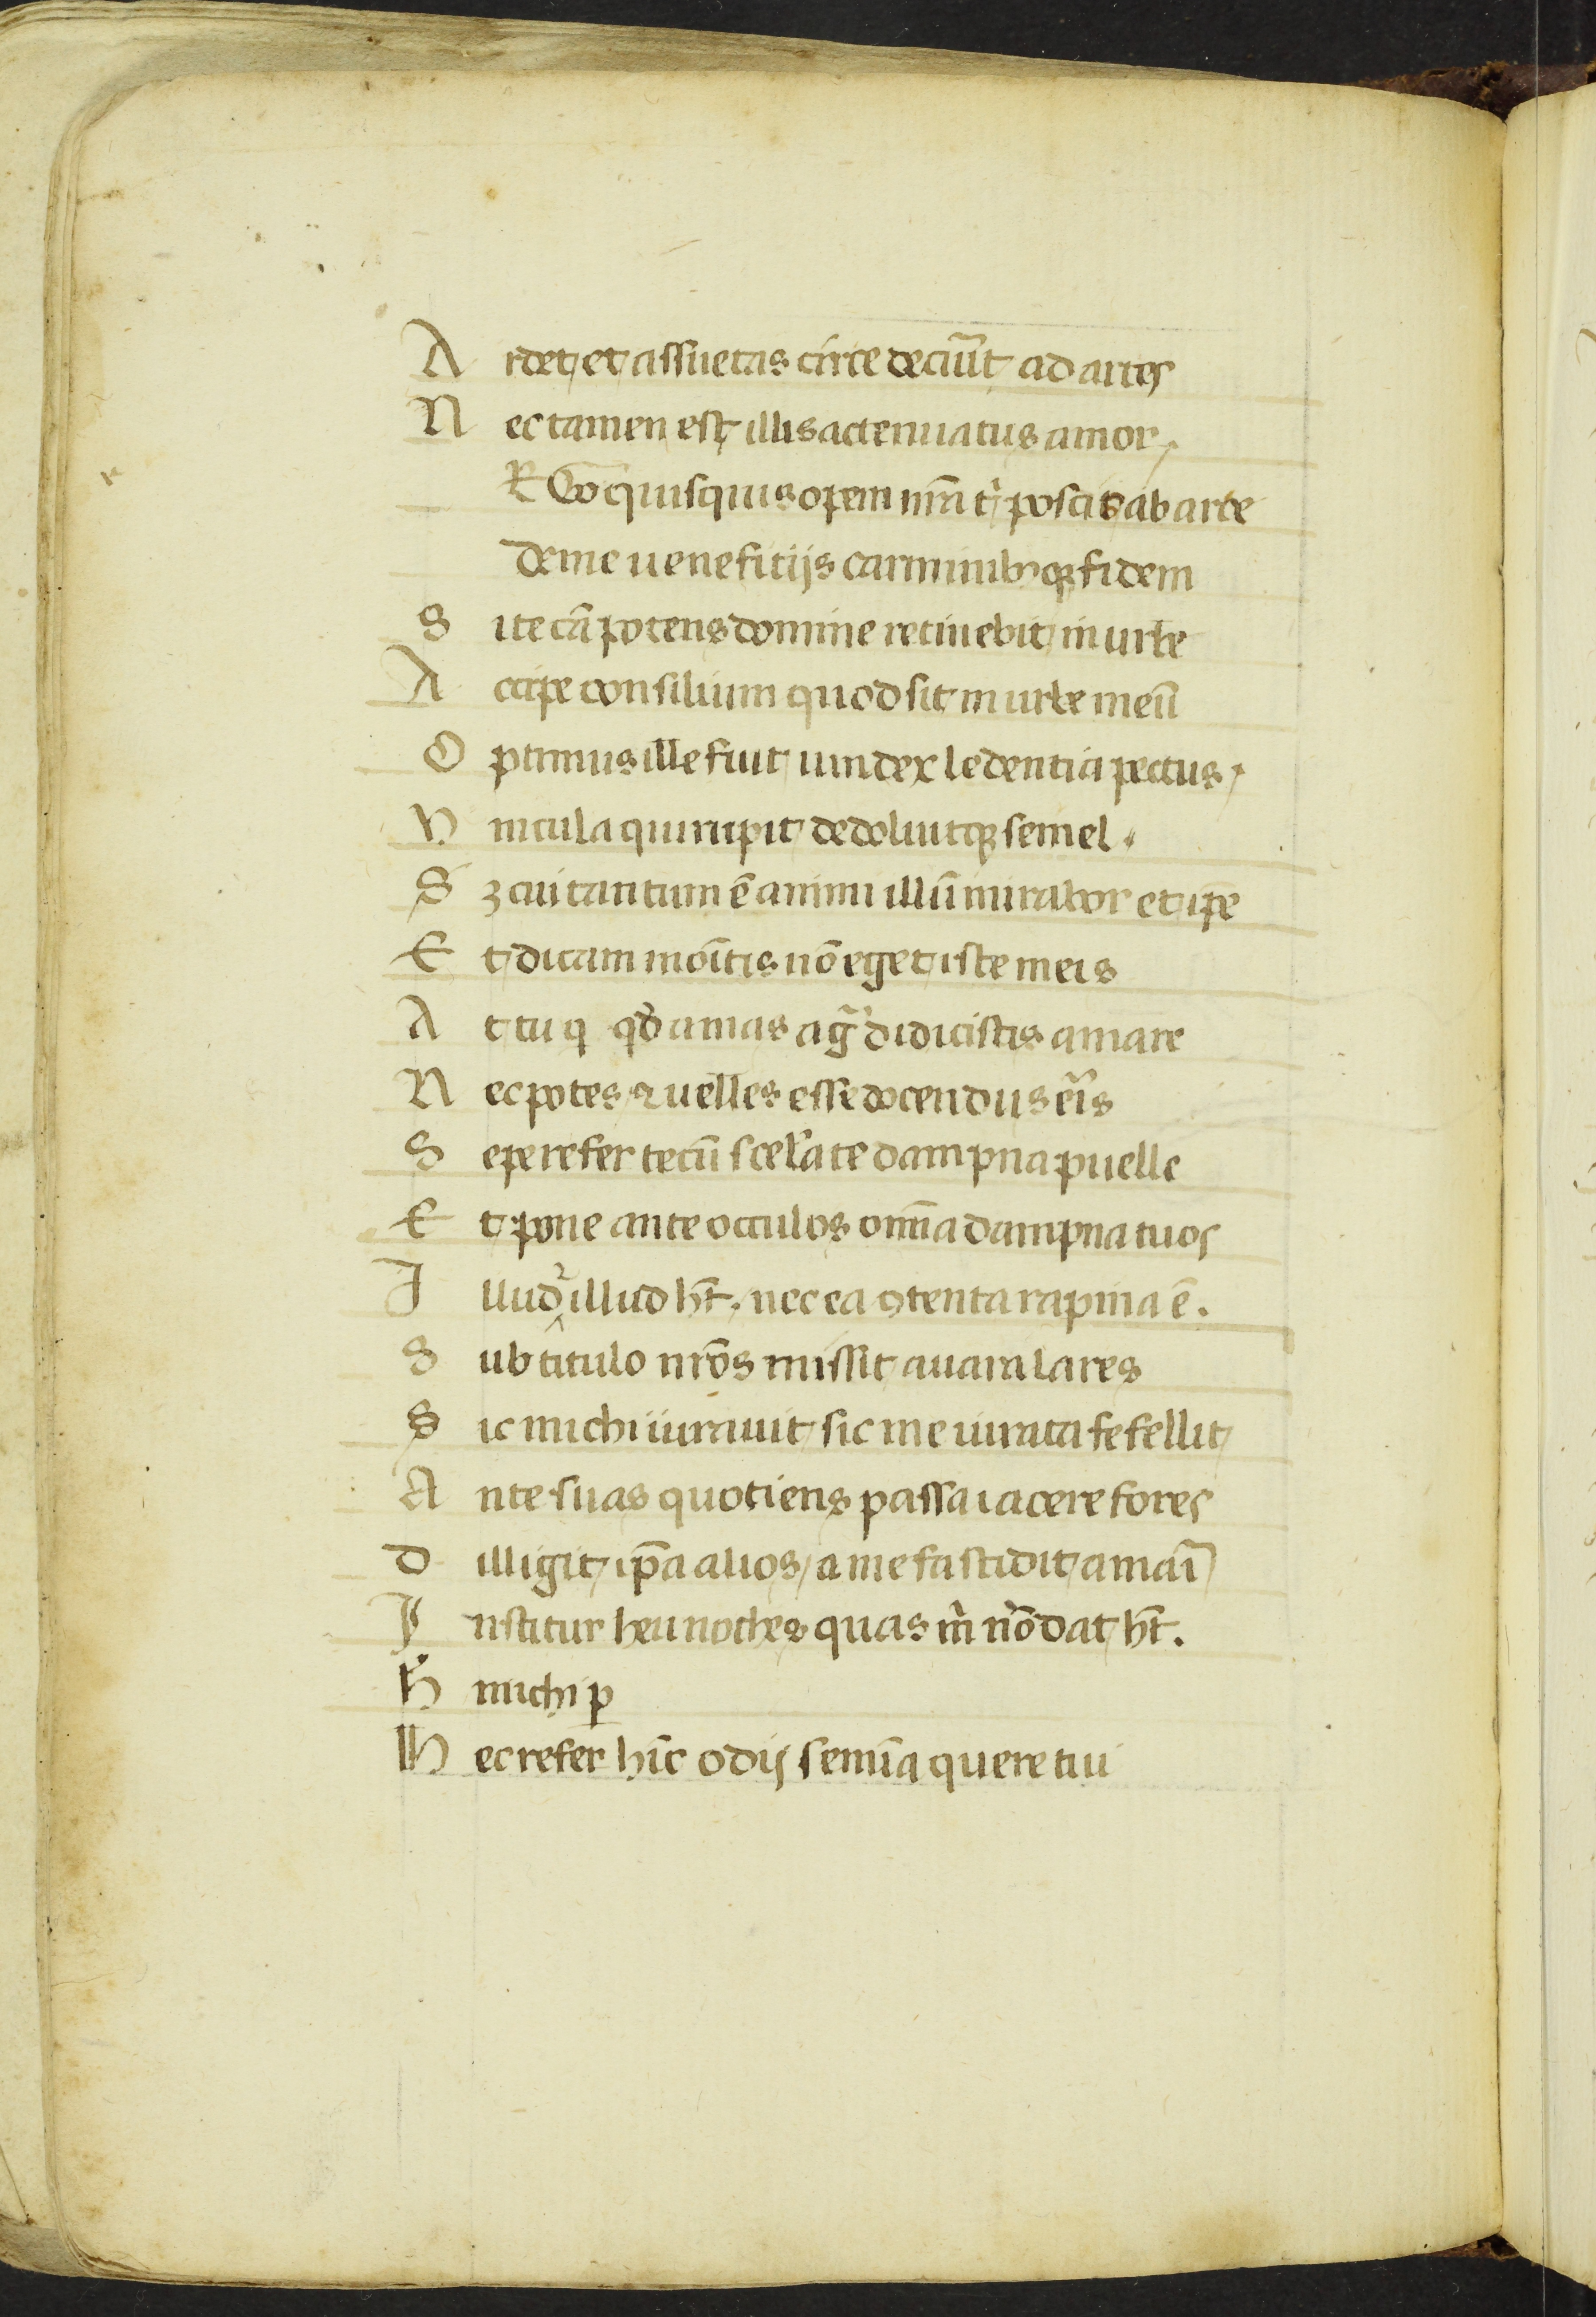 A rdet et assuetas circe decurr̄t ad artes
N ec tamen est illis actenuatus amor
E Go quisquis opem nr̄a tͥ poscis ab arte
deme uenefitijs carminibꝰqꝫ fidem
S i te cā potens domine retinebit in urbe
A ccipe consilium quod sit in urbe meū
O ptimus ille fuit uindex ledentia pectus
V incula qui rupit dedoluitqꝫ semel.
S ꝫ cui tantum ē animi illū mirabor et ip̄e
E t dicam mōitis nō eget iste meis
A t tu q qd̄ amas agr̄ didicistis amare
N ec potes ⁊ uelles esse docendus er̄is
S epe refer tecū scel̓ate dampna puelle
E t pone ante occulos om̄ia dampna tuos
I llud ⁊ illud hт̄. nec ea ꝯtenta rapina ē.
S ub titulo nr̄os missit auara lares
S ic michi iurauit sic me iurata fefellit
A nte suas quotiens passa iacere fores
D illigit ip̄a alios / a me fastidit amarī
I nstitur heu noctes quas m̄ nō dat ht̄.
H michi ꝑ
H ec refer hīc odij semīa quere tui